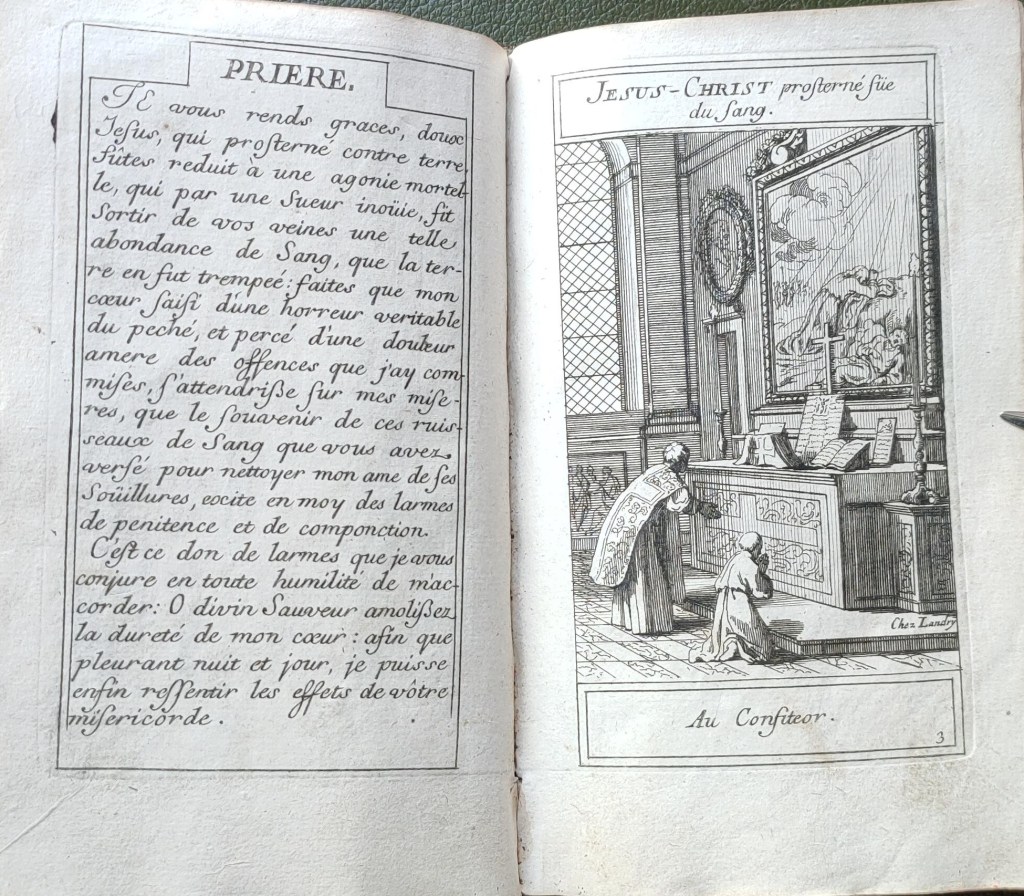 PRIERE.
JE vous rends graces, doux
Jesus, qui prosterné contre terre,
fûtes reduit à une agonie mortel-
le, qui par une sueur inoüie, fit
sortir de vos veines une telle
abondance de Sang, que la ter-
re en fut trempeé: faites que mon
cœur saisi d'une horreur veritable
du peché, et percé d'une douleur
amere des offences que j'ay com-
mises, s'attendrisse sur mes mise-
res, que le souvenir de ces ruis-
seaux de Sang que vous avez
versé pour nettoyer mon ame de ses
soüillures, excite en moy des larmes
de penitence et de componction.
C'est ce don de larmes que je vous
conjure en toute humilité de m'ac-
corder: O divin Sauveur amolissez
la dureté de mon cœur: afin que
pleurant nuit et jour, je puisse
enfin ressentir les effets de vôtre
misericorde.
JESUS-CHRIST prosterné süe
du sang.
Chez Landry
Au Confiteor.
3